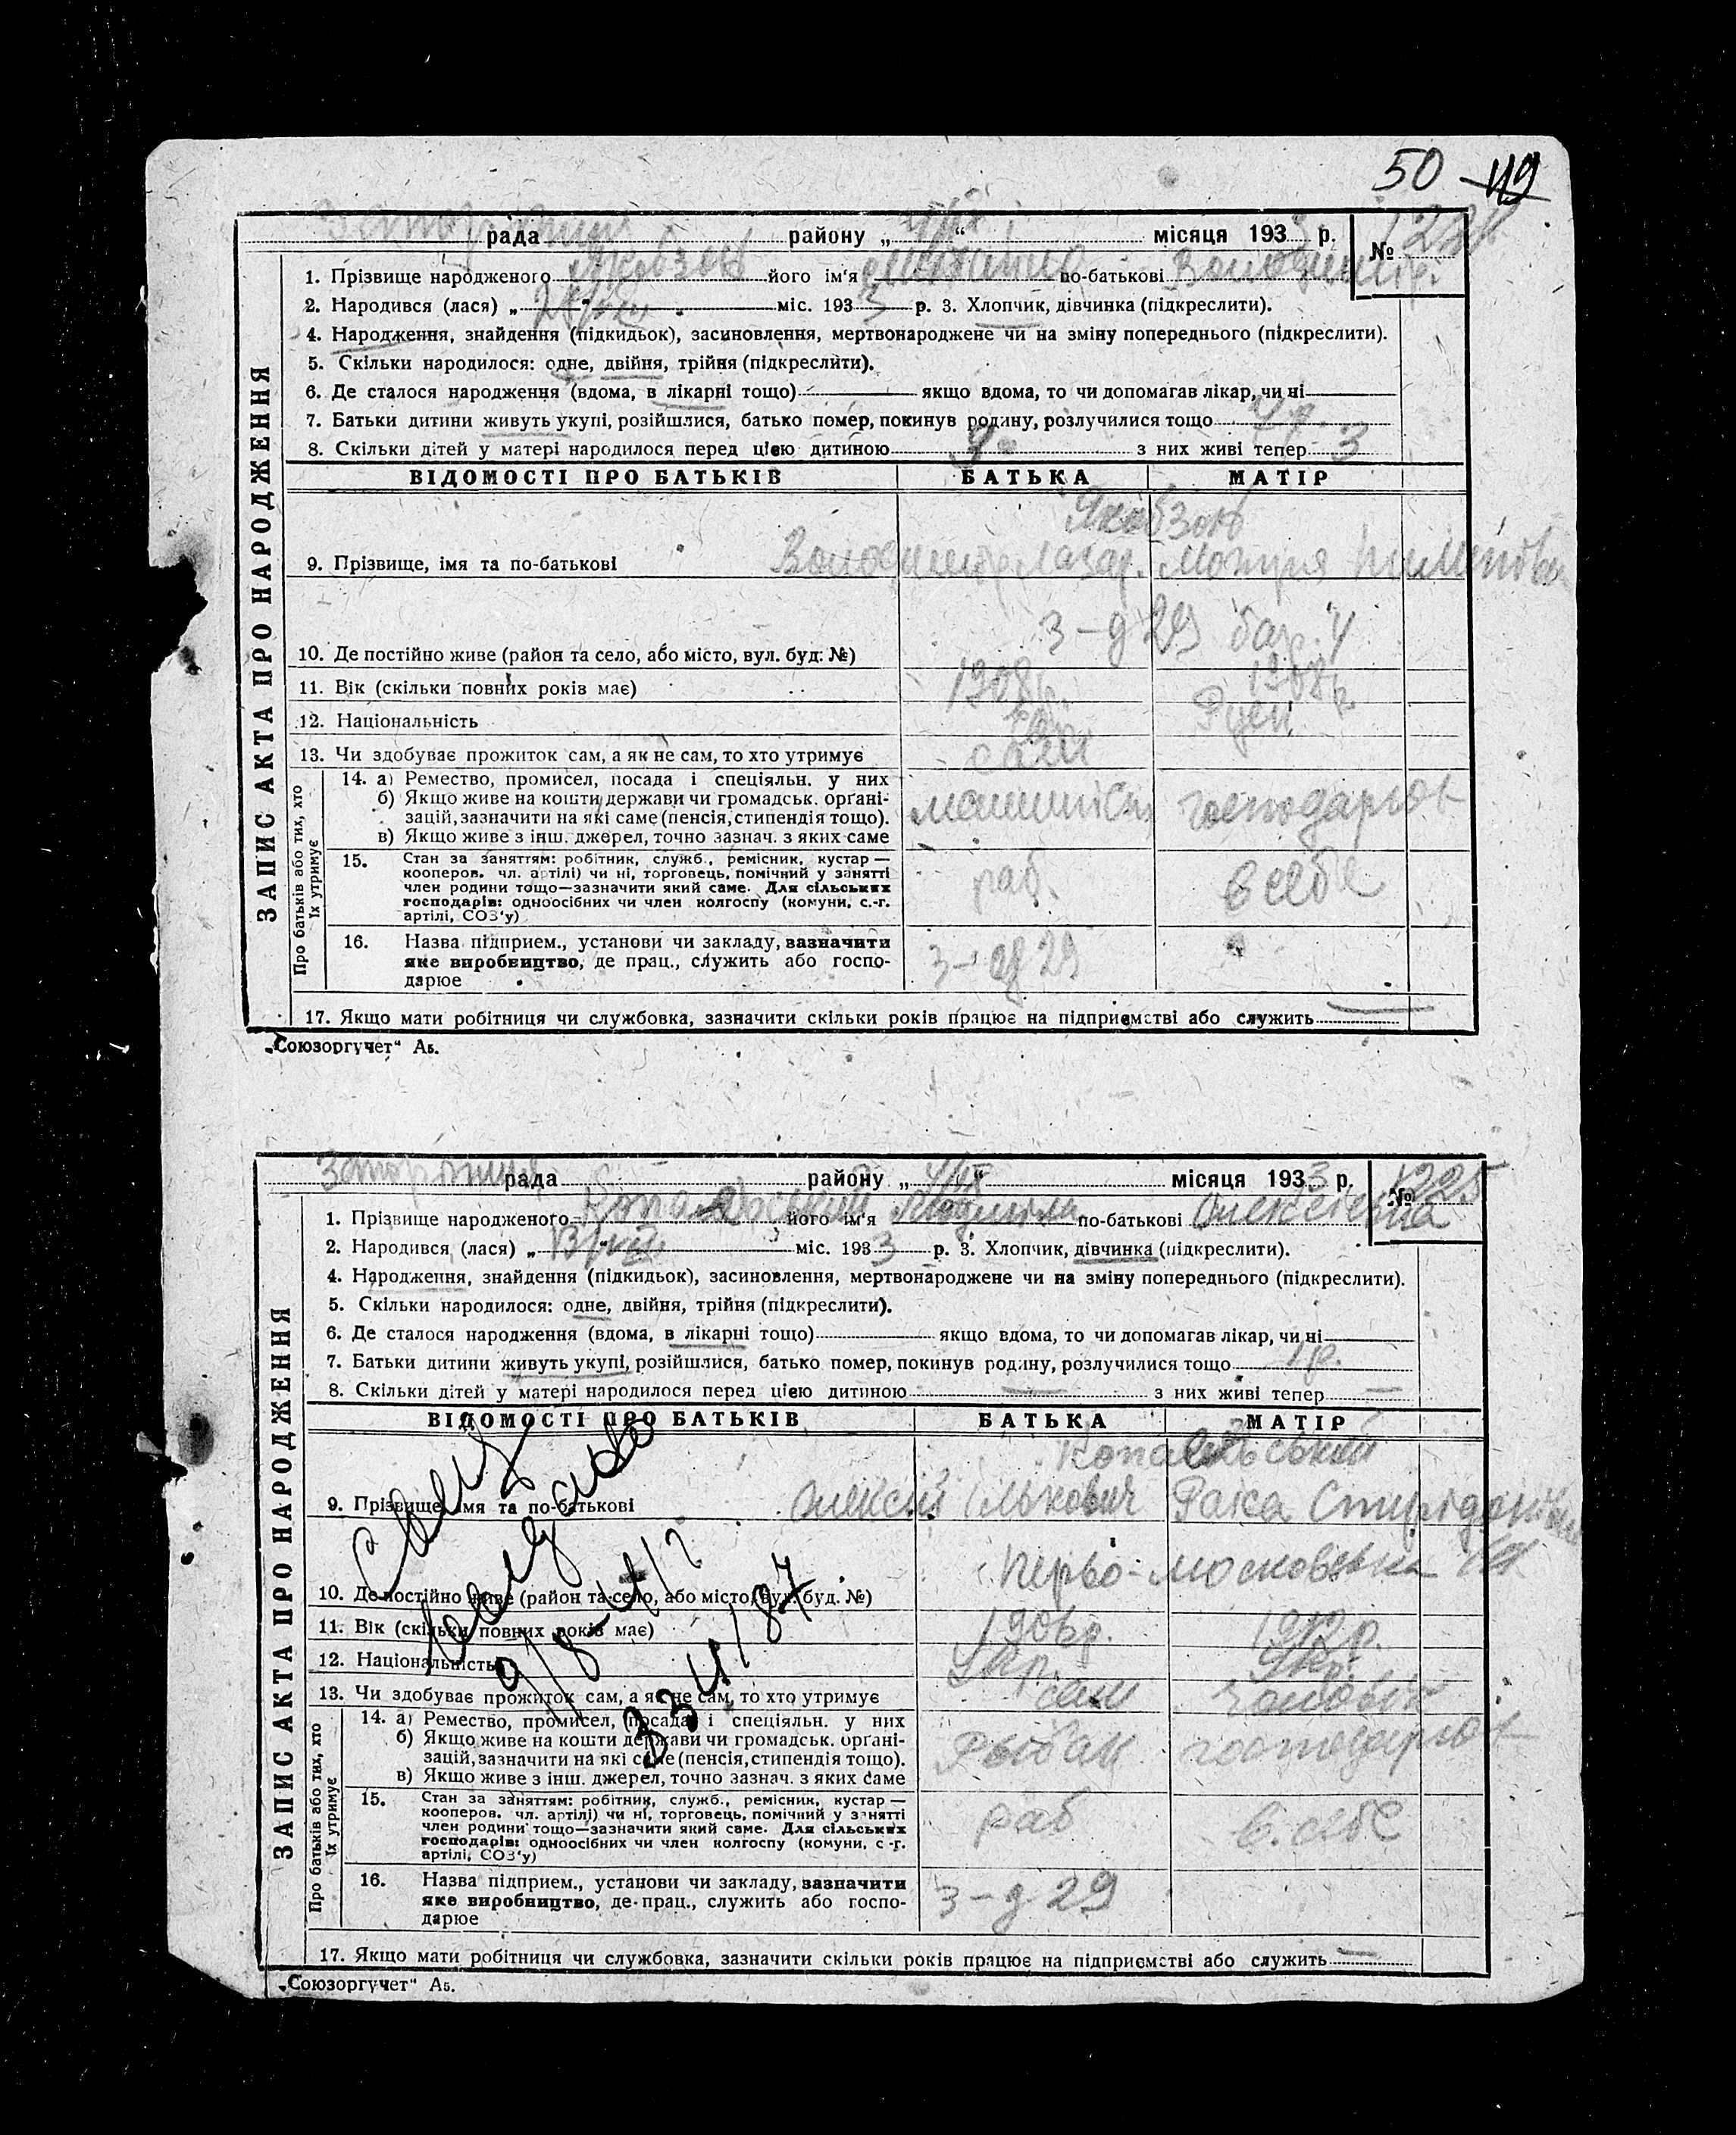 50 49
рада району „ “ місяця 193 р. №
1. Прізвище народженого його ім'я по-батькові
2. Народився (лася) „ “ міс. 1933 р. 3. Хлопчик, дівчинка (підкреслити).
4. Народження, знайдення (підкидьок), засиновлення, мертвонароджене чи на зміну попереднього (підкреслити).
5. Скільки народилося: одне, двійня, трійня (підкреслити).
6. Де сталося народження (вдома, в лікарні тощо) якщо вдома, то чи допомагав лікар, чи ні
7. Батьки дитини живуть укупі, розійшлися, батько помер, покинув родину, розлучилися тощо
8. Скільки дітей у матері народилося перед цією дитиною з них живі тепер 3
ЗАПИС АКТА ПРО НАРОДЖЕННЯ
ВІДОМОСТІ ПРО БАТЬКІВ БАТЬКА МАТІР
Якобзон
9. Прізвище, імя та по-батькові Володимир Лазар. Мотря
3-д 29 бар. 4
10. Де постійно живе (район та село, або місто, вул. буд. №)
11. Вік (скільки повних років має) 1908р. 1908р.
12. Національність
13. Чи здобуває прожиток сам, а як не сам, то хто утримує сам
Про батьків або тих, хто їх утримує
14. а) Ремество, промисел, посада і спеціяльн. у них
б) Якщо живе на кошти держави чи громадськ. орґані-
зацій, зазначити на які саме (пенсія, стипендія тощо).
в) Якщо живе з інш. джерел, точно зазнач. з яких саме
машиніст господарює
15. Стан за заняттям: робітник, служб., ремісник, кустар —
кооперов. чл. артілі) чи ні, торговець, помічний у занятті
член родини тощо—зазначити який саме. Для сільських
господарів: одноосібних чи член колгоспу (комуни, с.-г.
артілі, СОЗ'у)
раб. в себе
16. Назва підприєм., установи чи закладу, зазначити
яке виробництво, де прац., служить або госпо-
дарює
3-д 29
17. Якщо мати робітниця чи службовка, зазначити скільки років працює на підприємстві або служить
„Союзоргучет“ Аб.
рада району „ “ місяця 1933 р. № 1225
1. Прізвище народженого його ім'я Людміла по-батькові Олексіевна
2. Народився (лася) „ “ міс. 1933 р. 3. Хлопчик, дівчинка (підкреслити).
4. Народження, знайдення (підкидьок), засиновлення, мертвонароджене чи на зміну попереднього (підкреслити).
5. Скільки народилося: одне, двійня, трійня (підкреслити).
6. Де сталося народження (вдома, в лікарні тощо) якщо вдома, то чи допомагав лікар, чи ні
7. Батьки дитини живуть укупі, розійшлися, батько помер, покинув родину, розлучилися тощо 1 р.
8. Скільки дітей у матері народилося перед цією дитиною з них живі тепер
ЗАПИС АКТА ПРО НАРОДЖЕННЯ
ВІДОМОСТІ ПРО БАТЬКІВ БАТЬКА МАТІР
9. Прізвище, імя та по-батькові ОлексійІлькович Раіса
Перво-московська
10. Де постійно живе (район та село, або місто, вул. буд. №)
11. Вік (скільки повних років має) 1906р. 1912р.
12. Національність Укр. Укр.
13. Чи здобуває прожиток сам, а як не сам, то хто утримує сам чоловік
Про батьків або тих, хто їх утримує
14. а) Ремество, промисел, посада і спеціяльн. у них
б) Якщо живе на кошти держави чи громадськ. орґані-
зацій, зазначити на які саме (пенсія, стипендія тощо).
в) Якщо живе з інш. джерел, точно зазнач. з яких саме
господарює
15. Стан за заняттям: робітник, служб., ремісник, кустар —
кооперов. чл. артілі) чи ні, торговець, помічний у занятті
член родини тощо—зазначити який саме. Для сільських
господарів: одноосібних чи член колгоспу (комуни, с.-г.
артілі, СОЗ'у)
раб в себе
16. Назва підприєм., установи чи закладу, зазначити
яке виробництво, де прац., служить або госпо-
дарює
3-д 29
17. Якщо мати робітниця чи службовка, зазначити скільки років працює на підприємстві або служить
„Союзоргучет“ Аб.